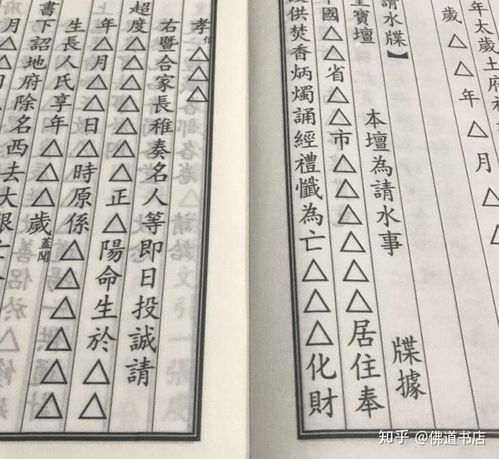 年太歲土府
歲△△年△月△
請水牒】
寶壇　本壇為請水事　牒據
國△省△市△△△△△△居住奉
供焚香炳燭誦經禮懺為亡△△△△化財
孝△△△
右暨合家長稚奏名人等即日投誠請
超度△△△△△正△陽命生於△
年△月△日△時原係△△△△△△
生長人氏享年△△歲蓋聞
書下詔地府除名西去大限亡
知乎 @佛道书店